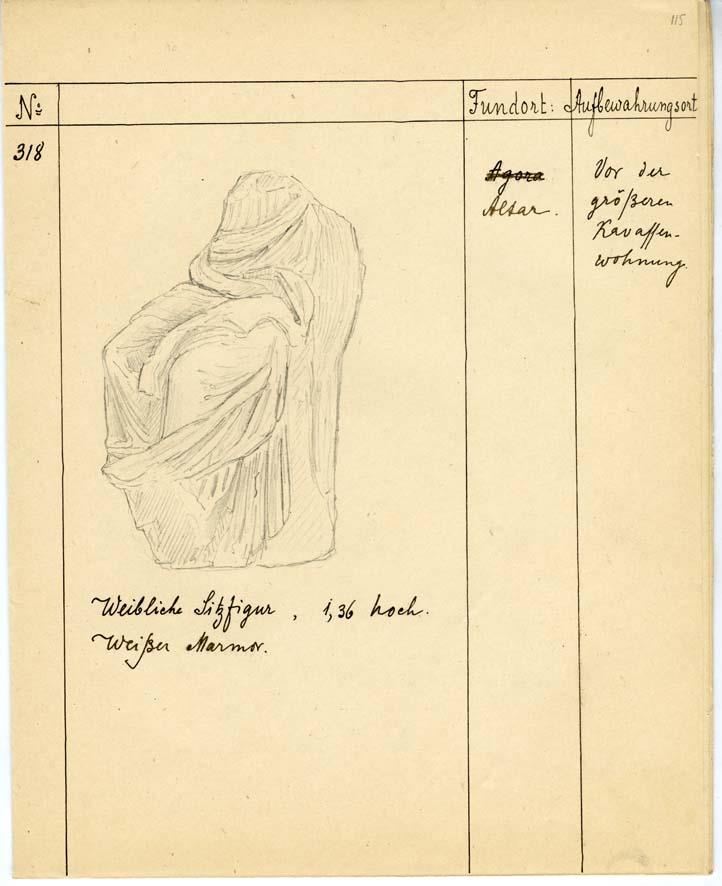 115
Nº
Fundort: Aufbewahrungsort
318
Agora
Altar.
Vor der
größeren
Kavassen-
wohnung.
Weibliche Sitzfigur, 1,36 hoch.
Weißer Marmor.